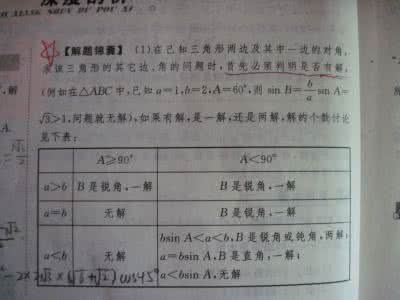 【解题锦囊】 (1)在已知三角形两边及其中一边的对角,
求该三角形的其它边、角的问题时,首先必须判明是否有解,
(例如在△ABC中,已知a=1,b=2,A=60°,则 sin B=b/a sin A=
√3>1,问题就无解),如果有解,是一解,还是两解,解的个数讨论
见下表:
A≥90° A<90°
a>b B是锐角,一解 B是锐角,一解
a=b 无解 B是锐角,一解
a<b 无解 bsin A<a<b,B是锐角或钝角,两解;
a=bsin A,B是直角,一解;
a<bsin A,无解
解
A.